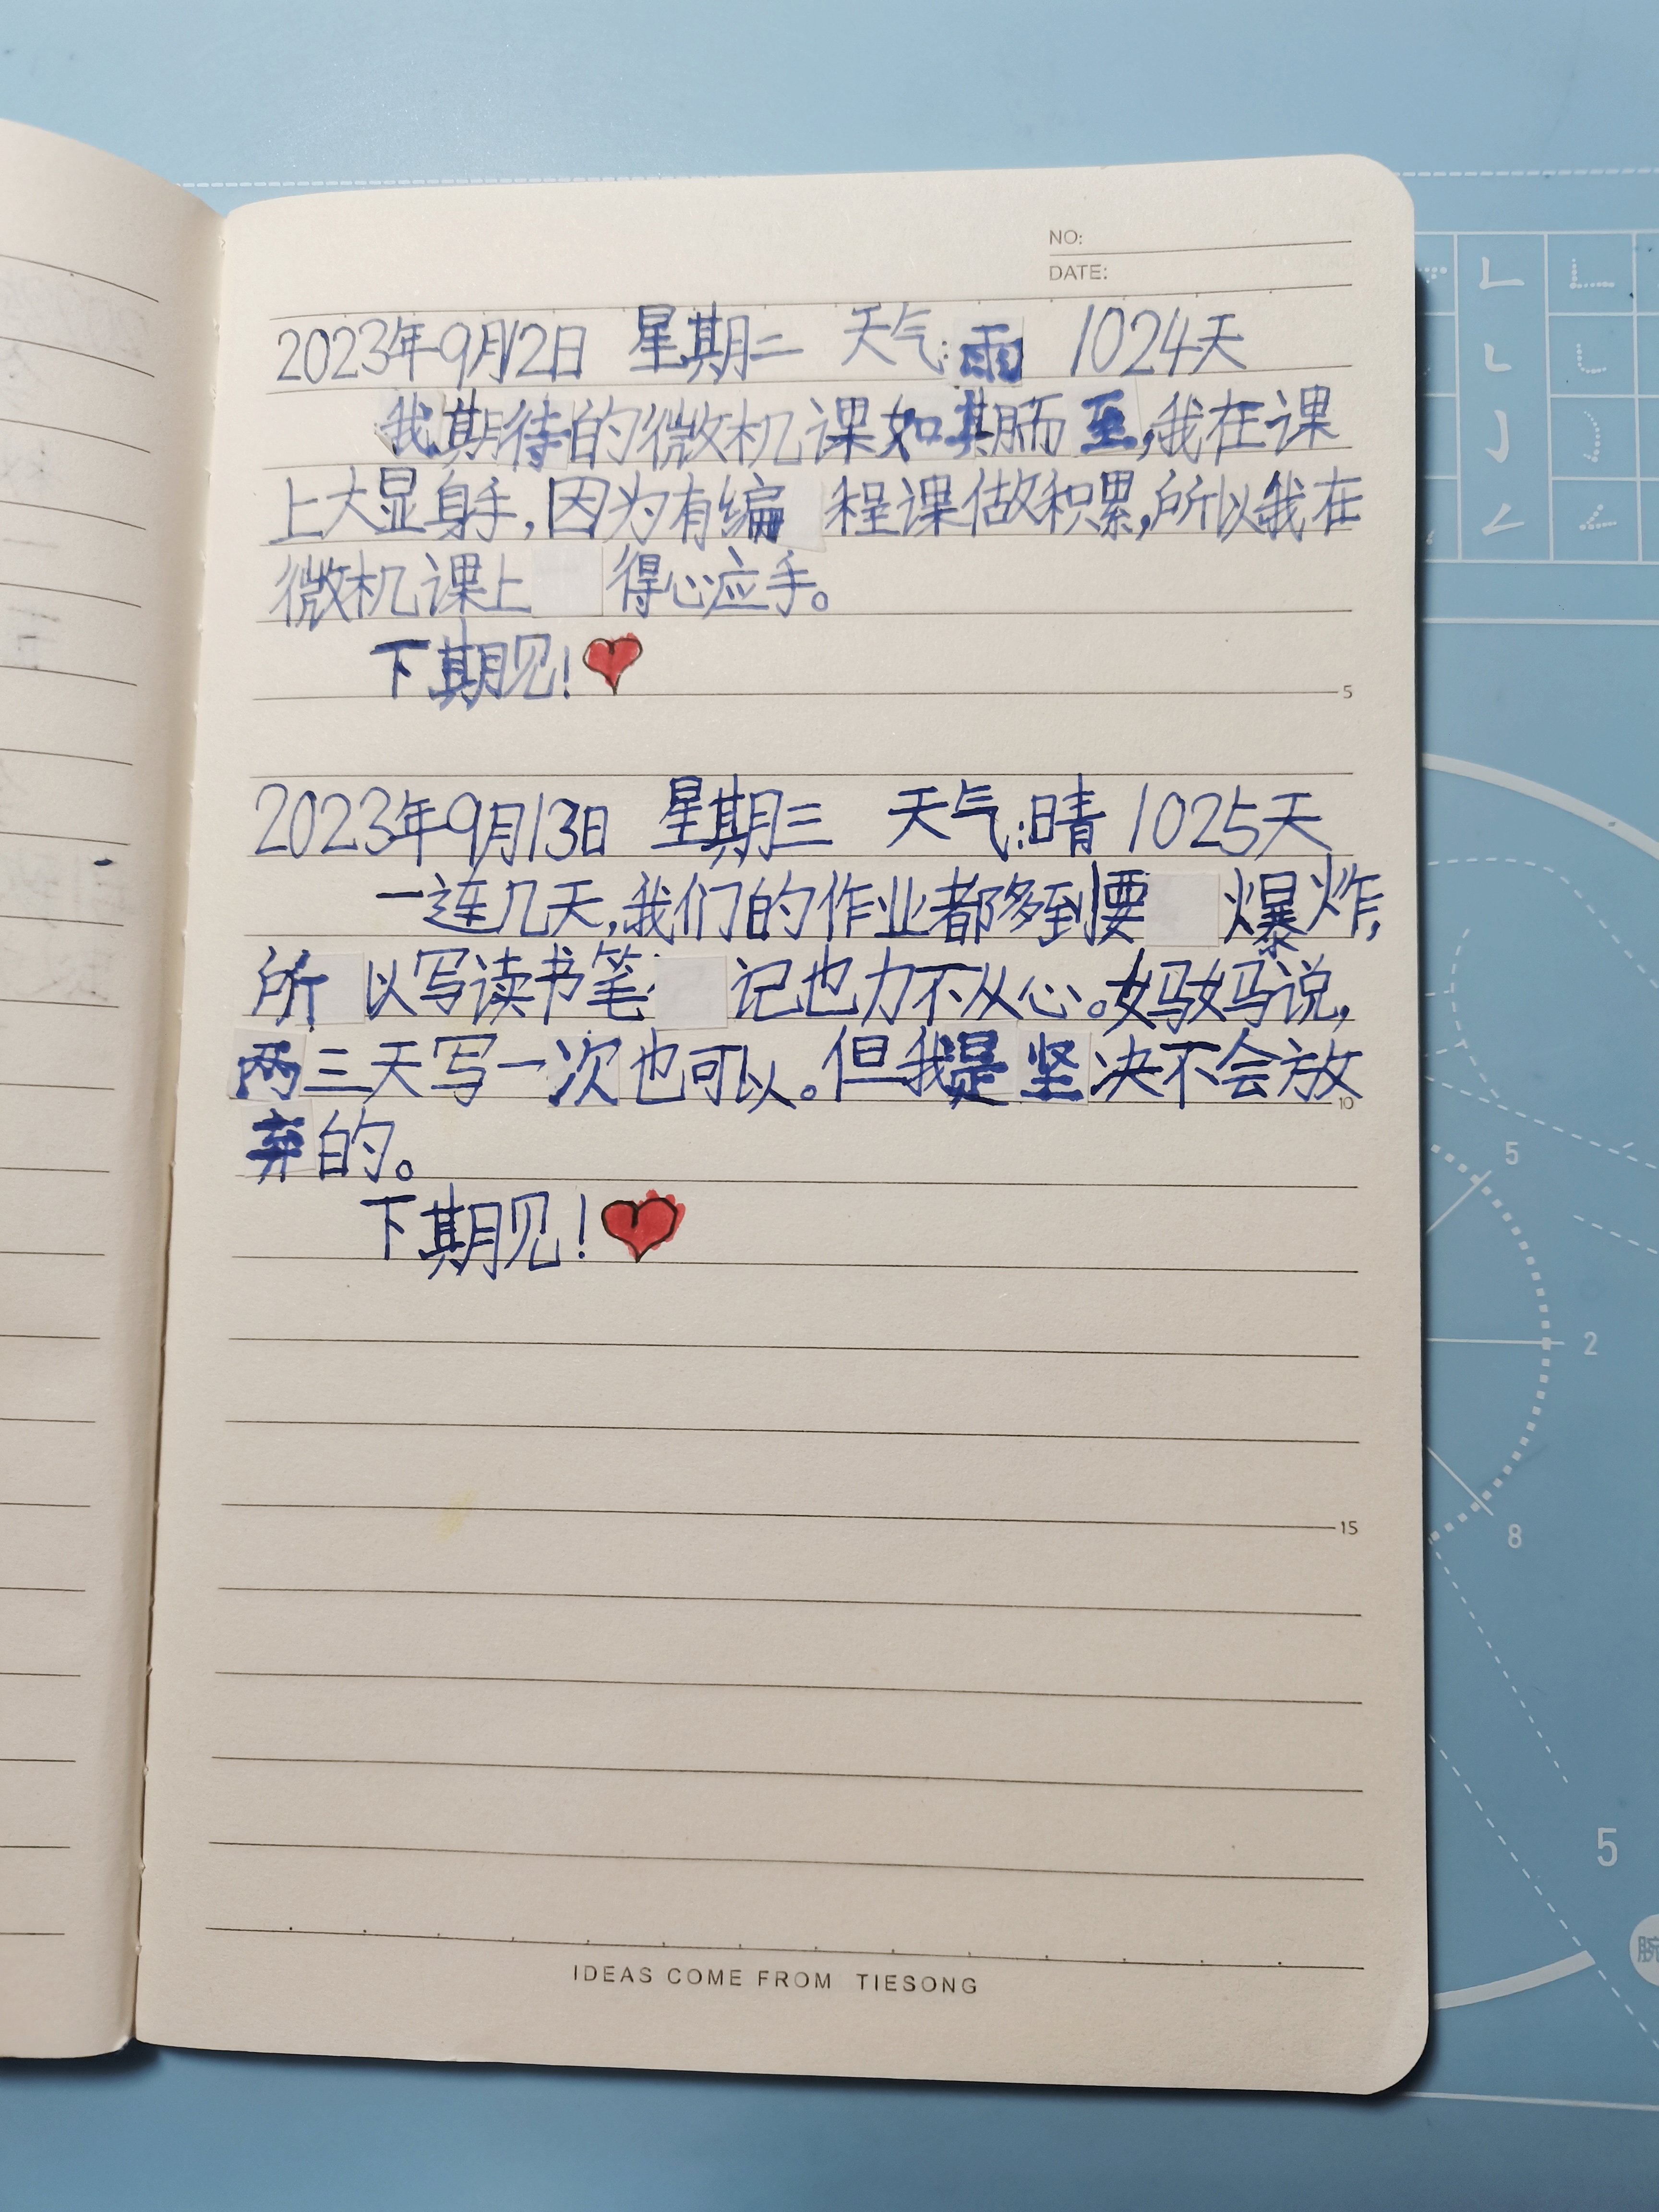 NO:
DATE:
2023年9月12日 星期二 天气:雨 1024天
我期待的微机课如期而至,我在课
上大显身手,因为有编程课做积累,所以我在
微机课上得心应手。
下期见!
5
2023年9月13日 星期三 天气:晴 1025天
一连几天,我们的作业都多到要爆炸,
所以写读书笔记也力不从心。妈妈说,
两三天写一次也可以。但我是坚决不会放
10
弃的。
下期见!
15
IDEAS COME FROM TIESONG
5
2
8
5
腕